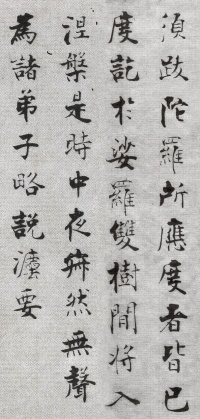 須跋陀羅所應度者皆已
度訖於娑羅雙樹間將入
涅槃是時中夜寂然無聲
為諸弟子略説法要